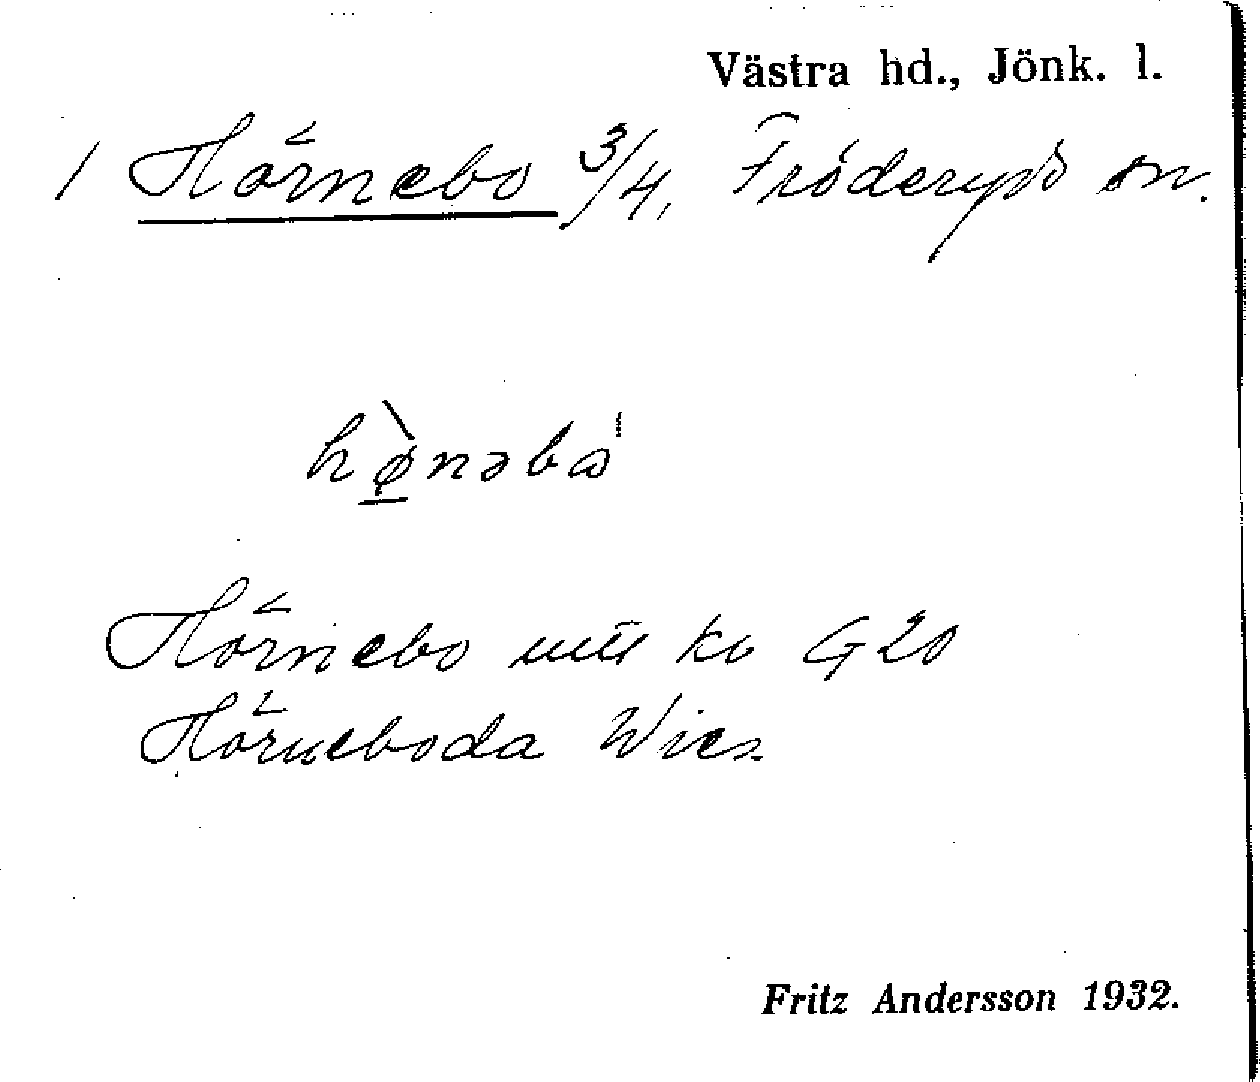 Västra hd., Jönk. l.
1 Hörnebo 3/4, Fröderyds sn.
hø̲̀nəbω
Hörnebo utt ko G 20
Hörneboda Wies.
Fritz Andersson 1932.